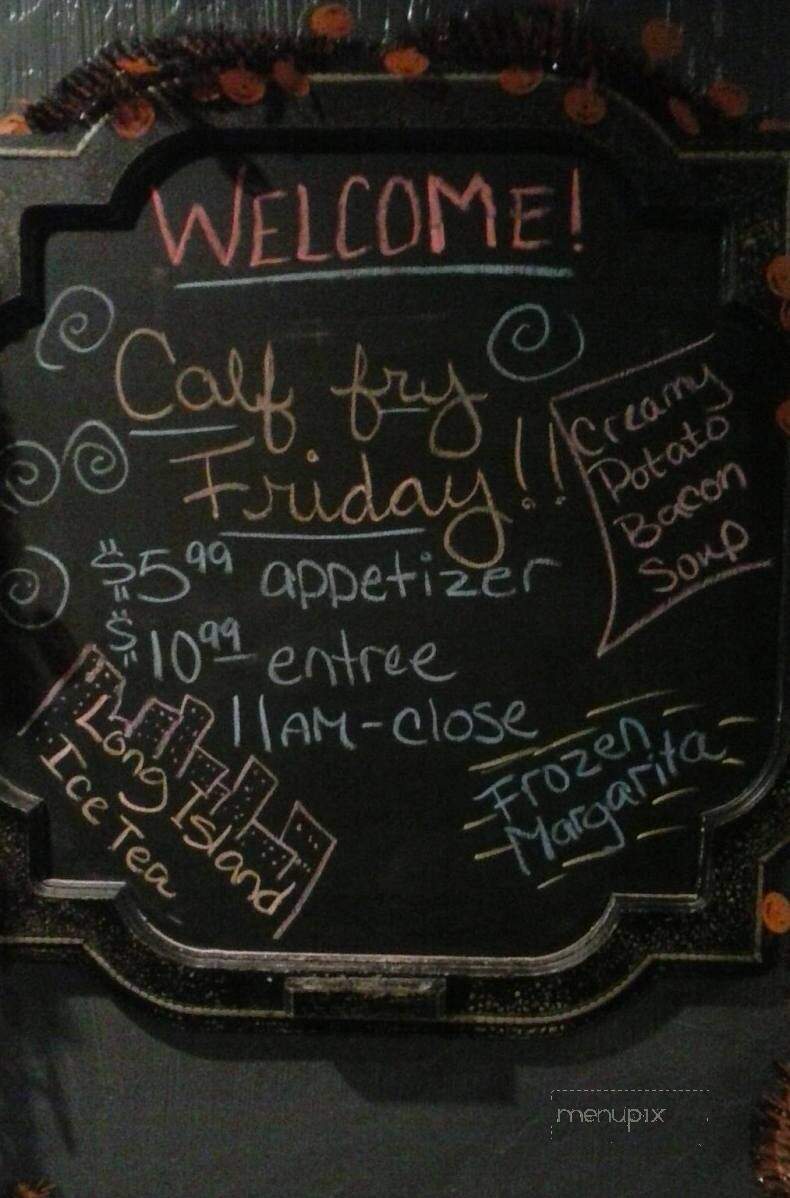 WELCOME!
Calf fry
Friday!!
Creamy
Potato
Bacon
Soup
$5.99 appetizer
$10.99 entree
11AM-close
Long Island
Ice Tea
Frozen
Margarita
menupix